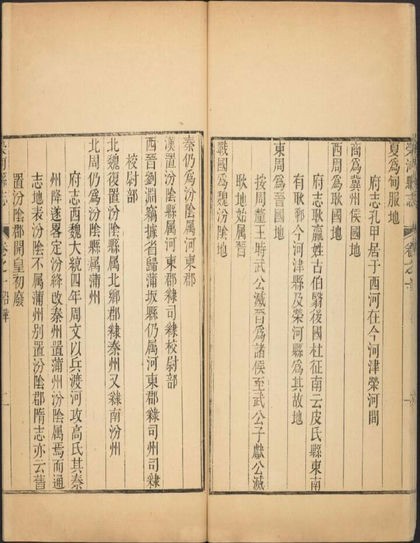 夏爲甸服地
府志孔甲居于西河在今河津滎河間
商爲冀州侯國地
西周爲耿國地
府志耿嬴姓古伯翳後國杜征南云皮氏縣東南
有耿鄉今河津縣及榮河縣爲其故地
東周爲晉國地
按周釐王時武公滅晉爲諸侯至武公子獻公滅
耿地始属晉
戰國爲魏汾陰地
秦仍爲汾陰属河東郡
漢置汾陰縣属河東郡隸司隸校尉部
西晉劉淵竊據省歸蒲坂縣仍属河東郡隸司州司隸
校尉部
北魏復置汾陰縣属北鄉郡隸秦州又隸南汾州
北周仍爲汾陰縣属蒲州
府志西魏大統四年周文以兵渡河攻高氏其秦
州降遂畧定汾絳改秦州置蒲州汾陰属焉而通
志地表汾陰不属蒲州别置汾陰郡隋志亦云舊
置汾陰郡開皇初廢